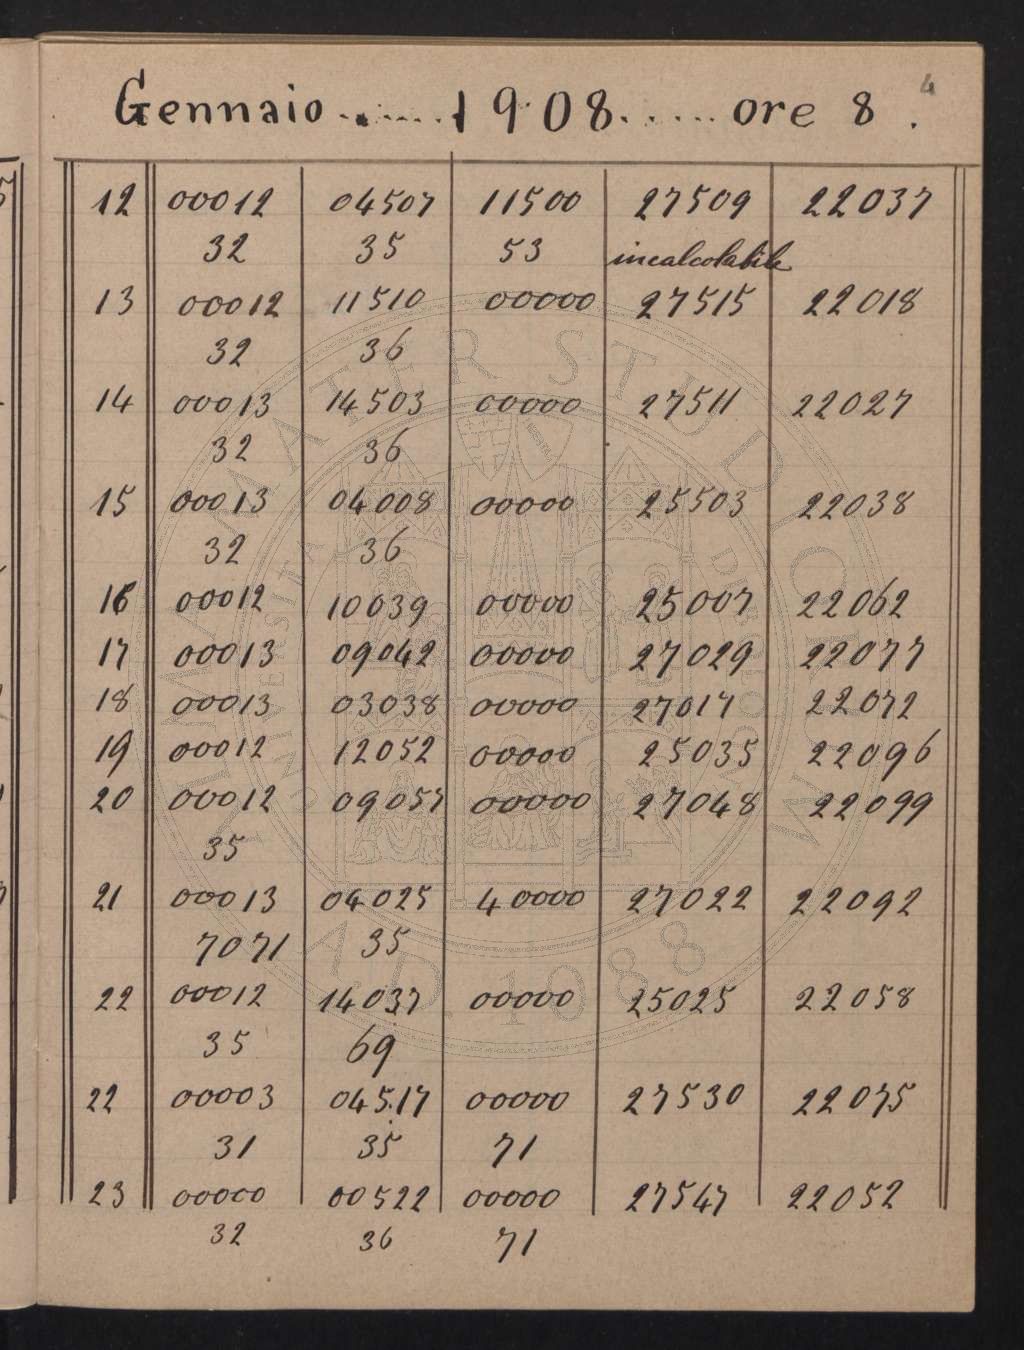 4
Gennaio ........ 1908 ...... ore 8.
12 00012 04507 11500 27509 22037
32 35 53 incalcolabile
13 00012 11510 00000 27515 22018
32 36
14 00013 14503 00000 27511 22027
32 36
15 00013 04008 00000 25503 22038
32 36
16 00012 10039 00000 25007 22062
17 00013 09042 00000 27029 22077
18 00013 03038 00000 27017 22072
19 00012 12052 00000 25035 22096
20 00012 09057 00000 27048 22099
35
21 00013 04025 40000 27022 22092
7071 35
22 00012 14037 00000 25025 22058
35 69
22 00003 04517 00000 27530 22075
31 35 71
23 00000 00522 00000 27547 22052
32 36 71
ALMA MATER STUDIORUM
A.D. 1088